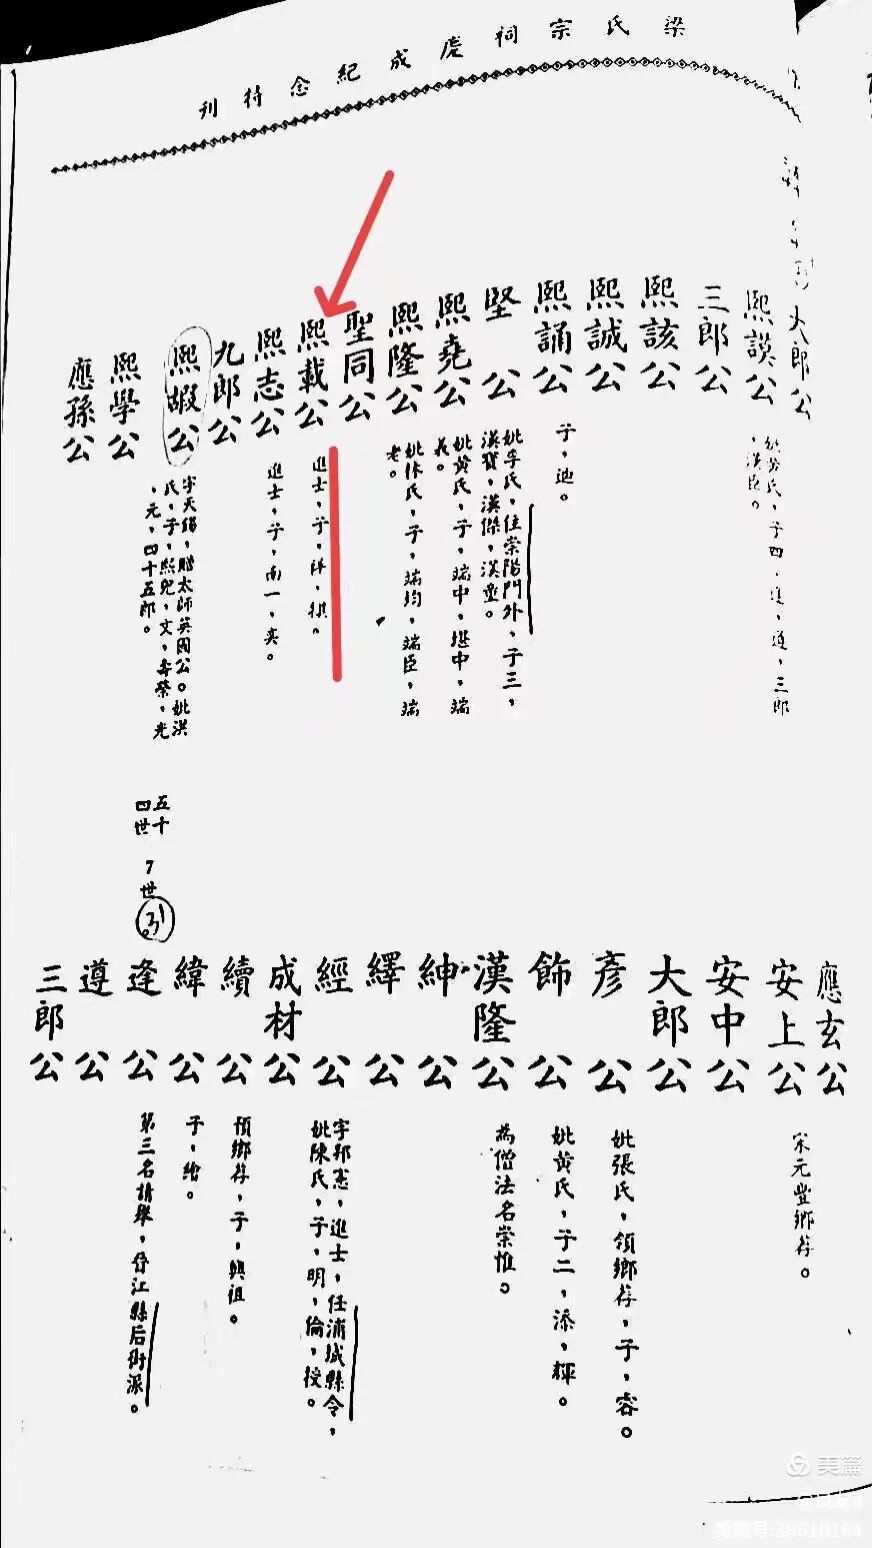 梁氏宗祠虎成紀念特刊
大郎公
熙謨公
三郎公
熙該公
熙誠公
熙誦公
子，迪。
堅公
妣李氏，住崇陽門外，子三，
漢寶，漢傑，漢臺。
熙堯公
妣黃氏，子，端中，堪中，端
義。
熙隆公
妣休氏，子，端均，端臣，端
老。
聖同公
熙載公
進士，子，祥，祺。
熙志公
進士，子，南一，奕。
九郎公
熙嘏公
字天錫，贈太師英國公。妣洪
氏，子，熙兜，文，壽榮，光
，元，四十五郎。
熙學公
應孫公
五十
四世
7世
應玄公
安上公
宋元豐鄉荐。
安中公
大郎公
彥公
妣張氏，領鄉荐，子，容。
飾公
妣黃氏，子二，添，輝。
漢隆公
為僧法名崇惟。
紳公
繹公
經公
字邦憲，進士，任浦城縣令，
妣陳氏，子，明，倫，授。
成材公
續公
預鄉荐，子，興祖。
緯公
子，給。
逢公
第三名請舉，晉江縣后街派。
遵公
三郎公
美篇
美篇号:38610164